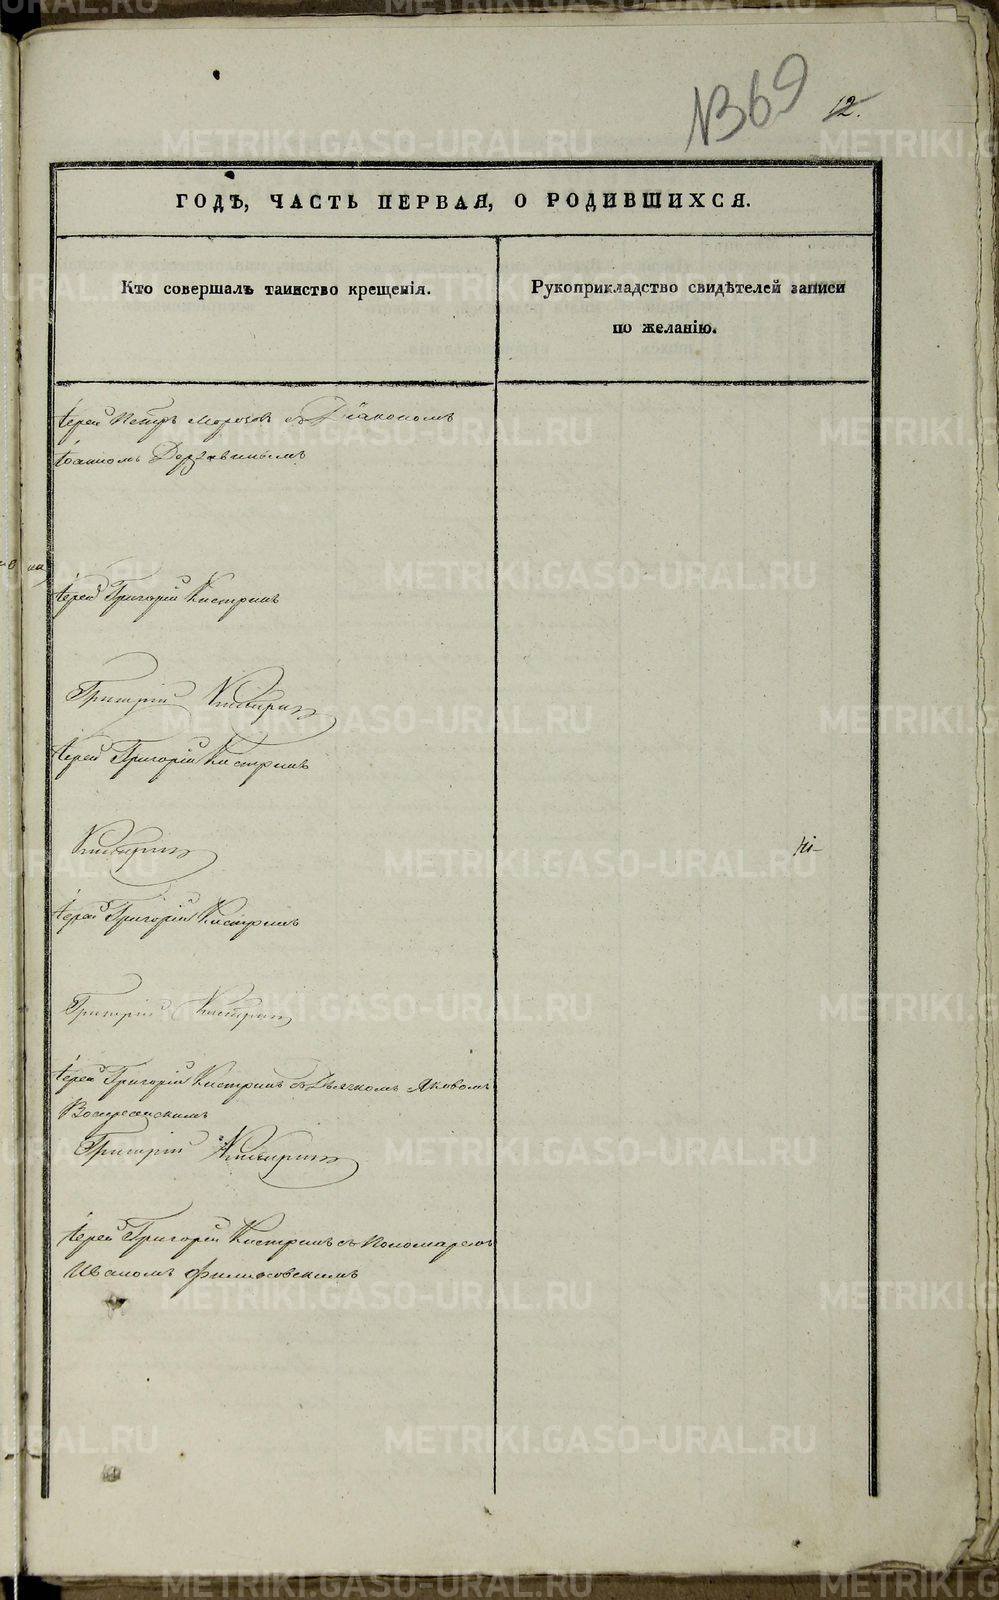 №369 12.
ГОДЪ, ЧАСТЬ ПЕРВАЯ, О РОДИВШИХСЯ.
Кто совершалъ таинство крещенія.
Рукоприкладство свидѣтелей записи
по желанію.
Іерей Петръ Морозовъ съ Діакономъ
Іоанномъ Державинымъ
Іерей Григорій Кистринъ
Григорій Кистринъ
Іерей Григорій Кистринъ
Кистринъ
Іерей Григорій Кистринъ
Григорій Кистринъ
Іерей Григорій Кистринъ съ Дьячкомъ Яковомъ
Воскресенскимъ
Григорій Кистринъ
Іерей Григорій Кистринъ съ Пономаремъ
Иваномъ Филисовскимъ
METRIKI.GASO-URAL.RU